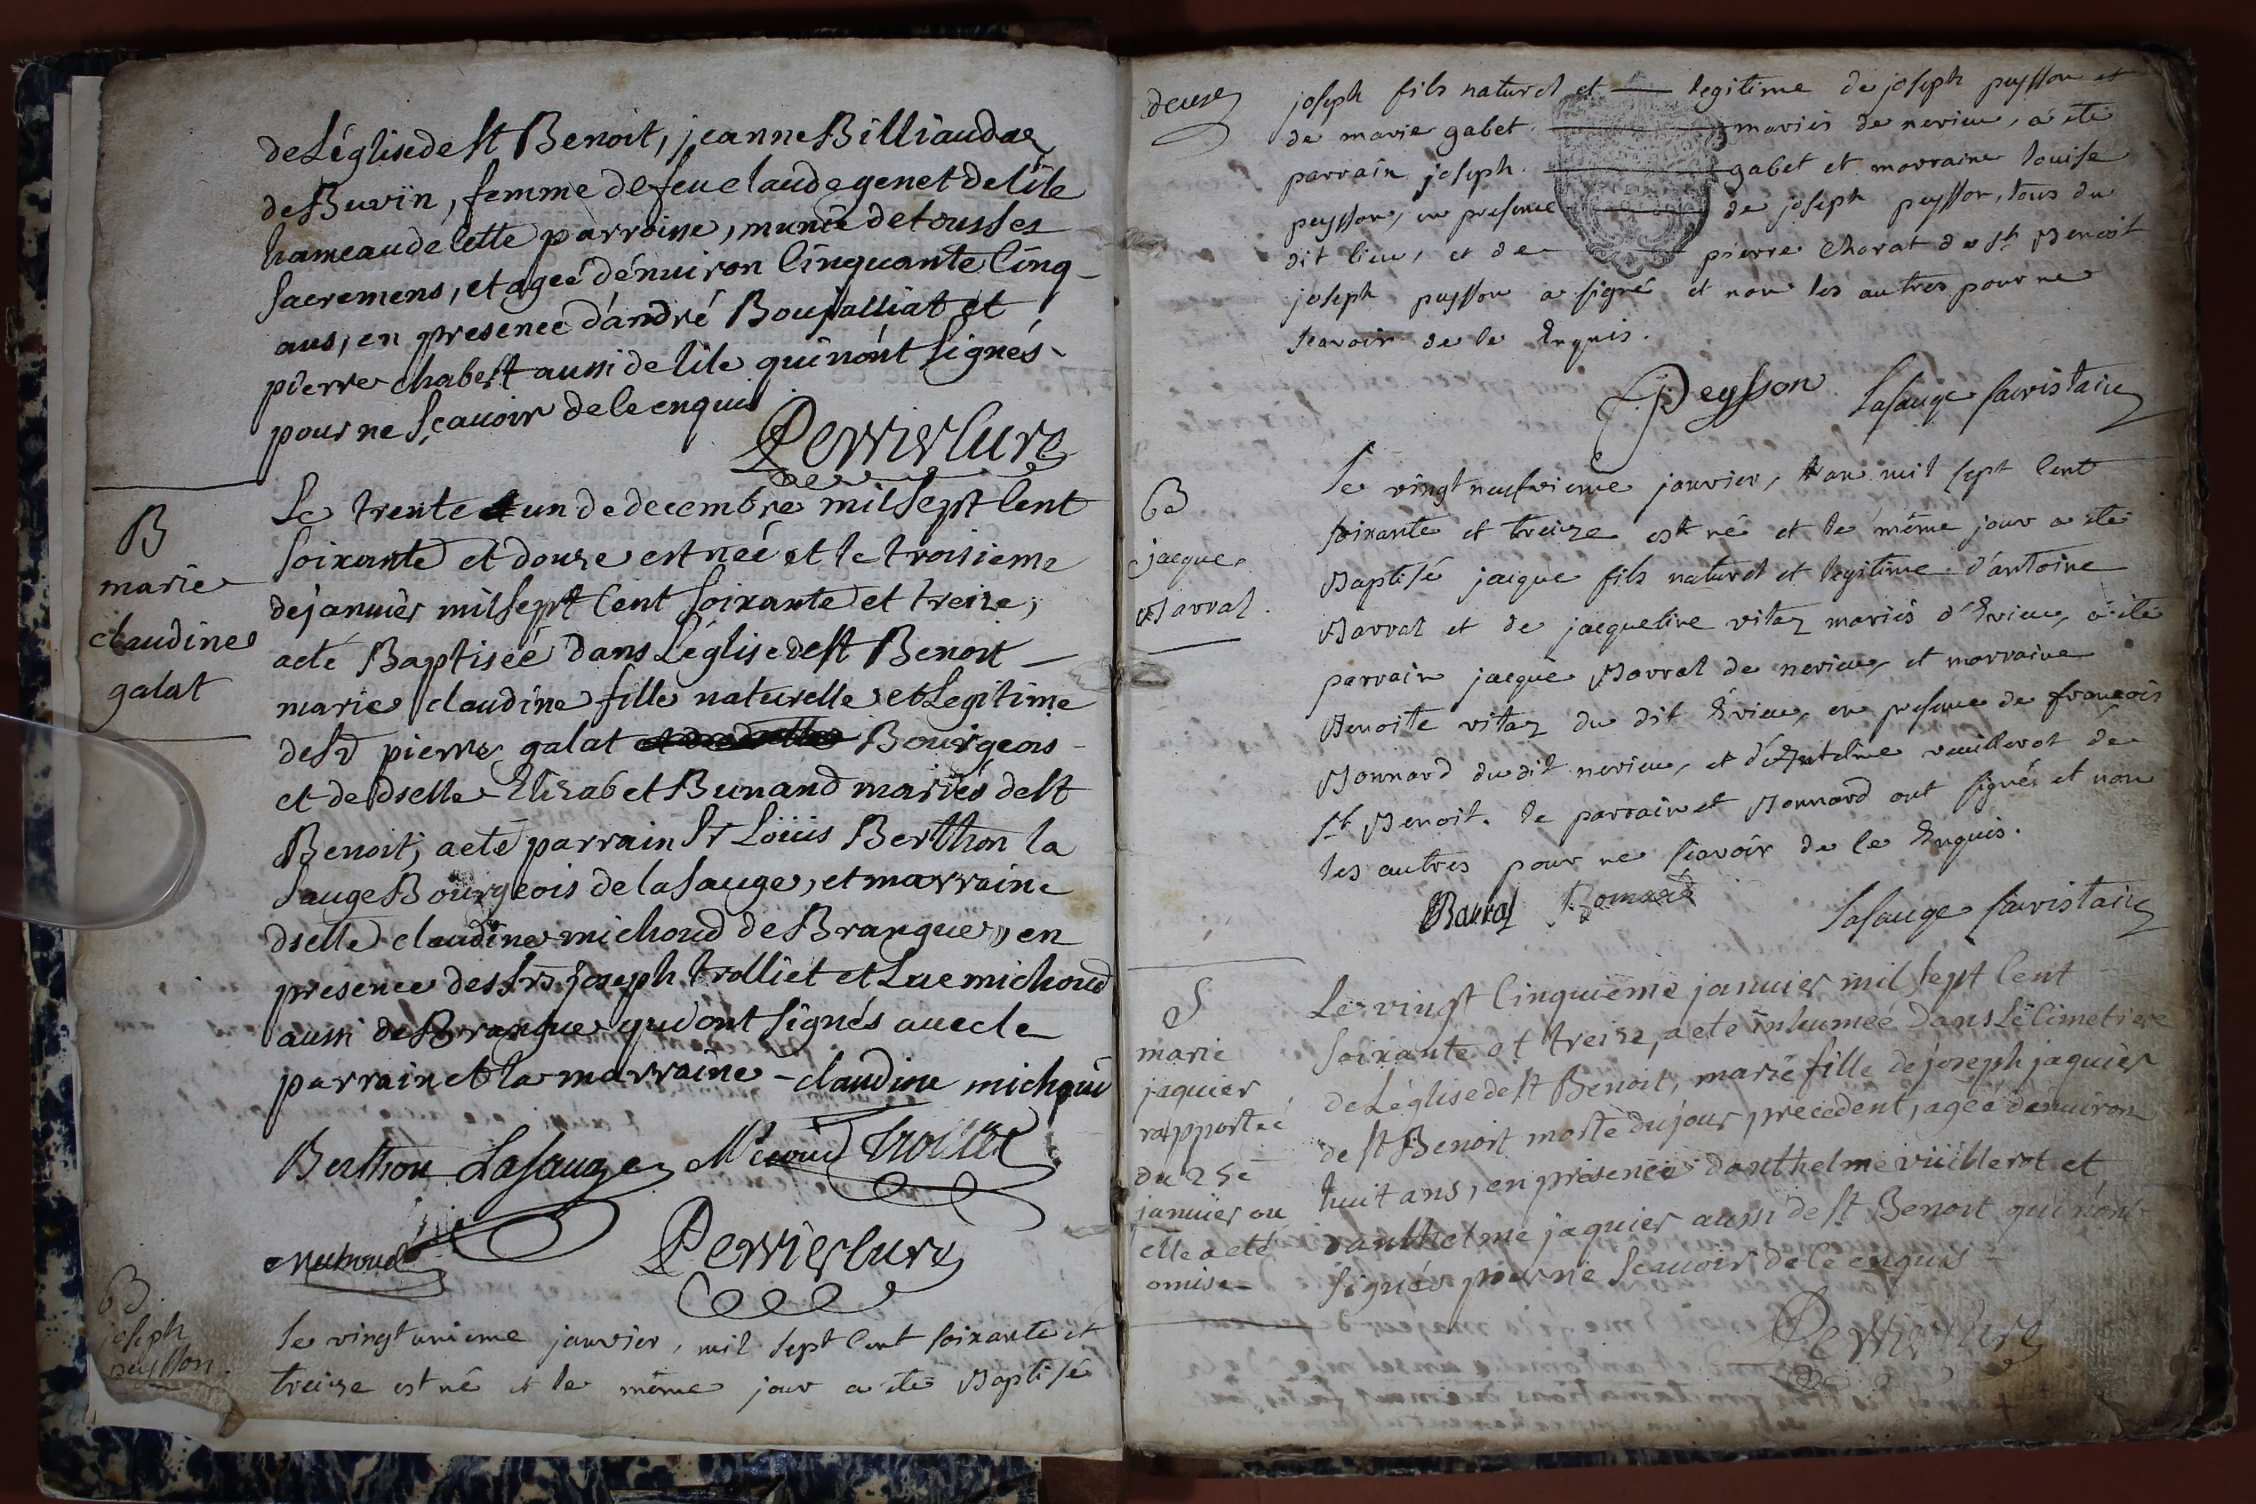 de Léglise de st Benoit, jeanne Billiaudaz
de Buvin, femme de feu claude genet de lile
hameau de cette parroisse, munie de tous ses
sacremens, et ageé dénuiron cinquante cinq
ans, en presence dándré Boujalliat et
pierre chabert aussi de lile qui nónt signés
pour ne sçauoir de ce enquis
Perrier curé
B
marie
claudine
galat
Le trente et un de decembre mil sept cent
soixante et douze est neé et le troisieme
de januier mil sept cent soixante et treize,
a eté Baptisée dans Léglise de st Benoit
marie claudine fille naturelle et Legitime
de sr pierre galat Bourgeois
et de dselle Elizabet Bunand mariés de st
Benoit, a eté parrain sr Loüis Berthon la
sauge Bourgeois de la sauge, et marraine
dselle claudine michoud de Brangue, en
presence des srs joseph trolliet et Luc michoud
aussi de Brangue qui ont signés auec le
parrain et la marraine - claudine michoud
Berthon Lasauge Michoud Trolliet
Michoud
Perrier curé
B
joseph
peysson
le vingt unieme janvier, mil sept cent soixante et
treize est né et le même jour a été Baptisé
deux
joseph fils naturel et legitime de joseph peysson et
de marie gabet mariés de nerieu, a été
parrain joseph gabet et marraine louise
peysson, en presence de joseph peysson, tous du
dit lieu, et de pierre Chorat de st Benoit
joseph peysson a signé et non les autres pour ne
scavoir de ce Enquis.
Peysson Lasauge sacristain
B
jacque
Barral
le vingt neufvieme janvier, l'an mil sept cent
soixante et treize est né et le même jour a été
Baptisé jacque fils naturel et legitime d'antoine
Barral et de jacqueline vitaz mariés d'Evieu, a été
parrain jacque Barral de nerieu, et marraine
Benoite vitaz du dit Evieu, en presence de françois
Bonnard du dit nerieu, et d'Antelme vuillerot de
st Benoit. le parrain et Bonnard ont signés et non
les autres pour ne scavoir de ce Enquis.
Barral Bonnard
Lasauge sacristain
S
marie
jaquier
rapporteé
du 25e
januier ou
elle a eté
omise
Le vingt cinquieme januier mil sept cent
soixante et treize, a eté inhumeé dans Le cimetiere
de Léglise de st Benoit, marie fille de joseph jaquier
de st Benoit morte du jour precedent, ageé dénuiron
huit ans, en presence danthelme vüillerot et
danthelme jaquier aussi de st Benoit qui nónt
signés pour ne scauoir de ce enquis
Perrier curé